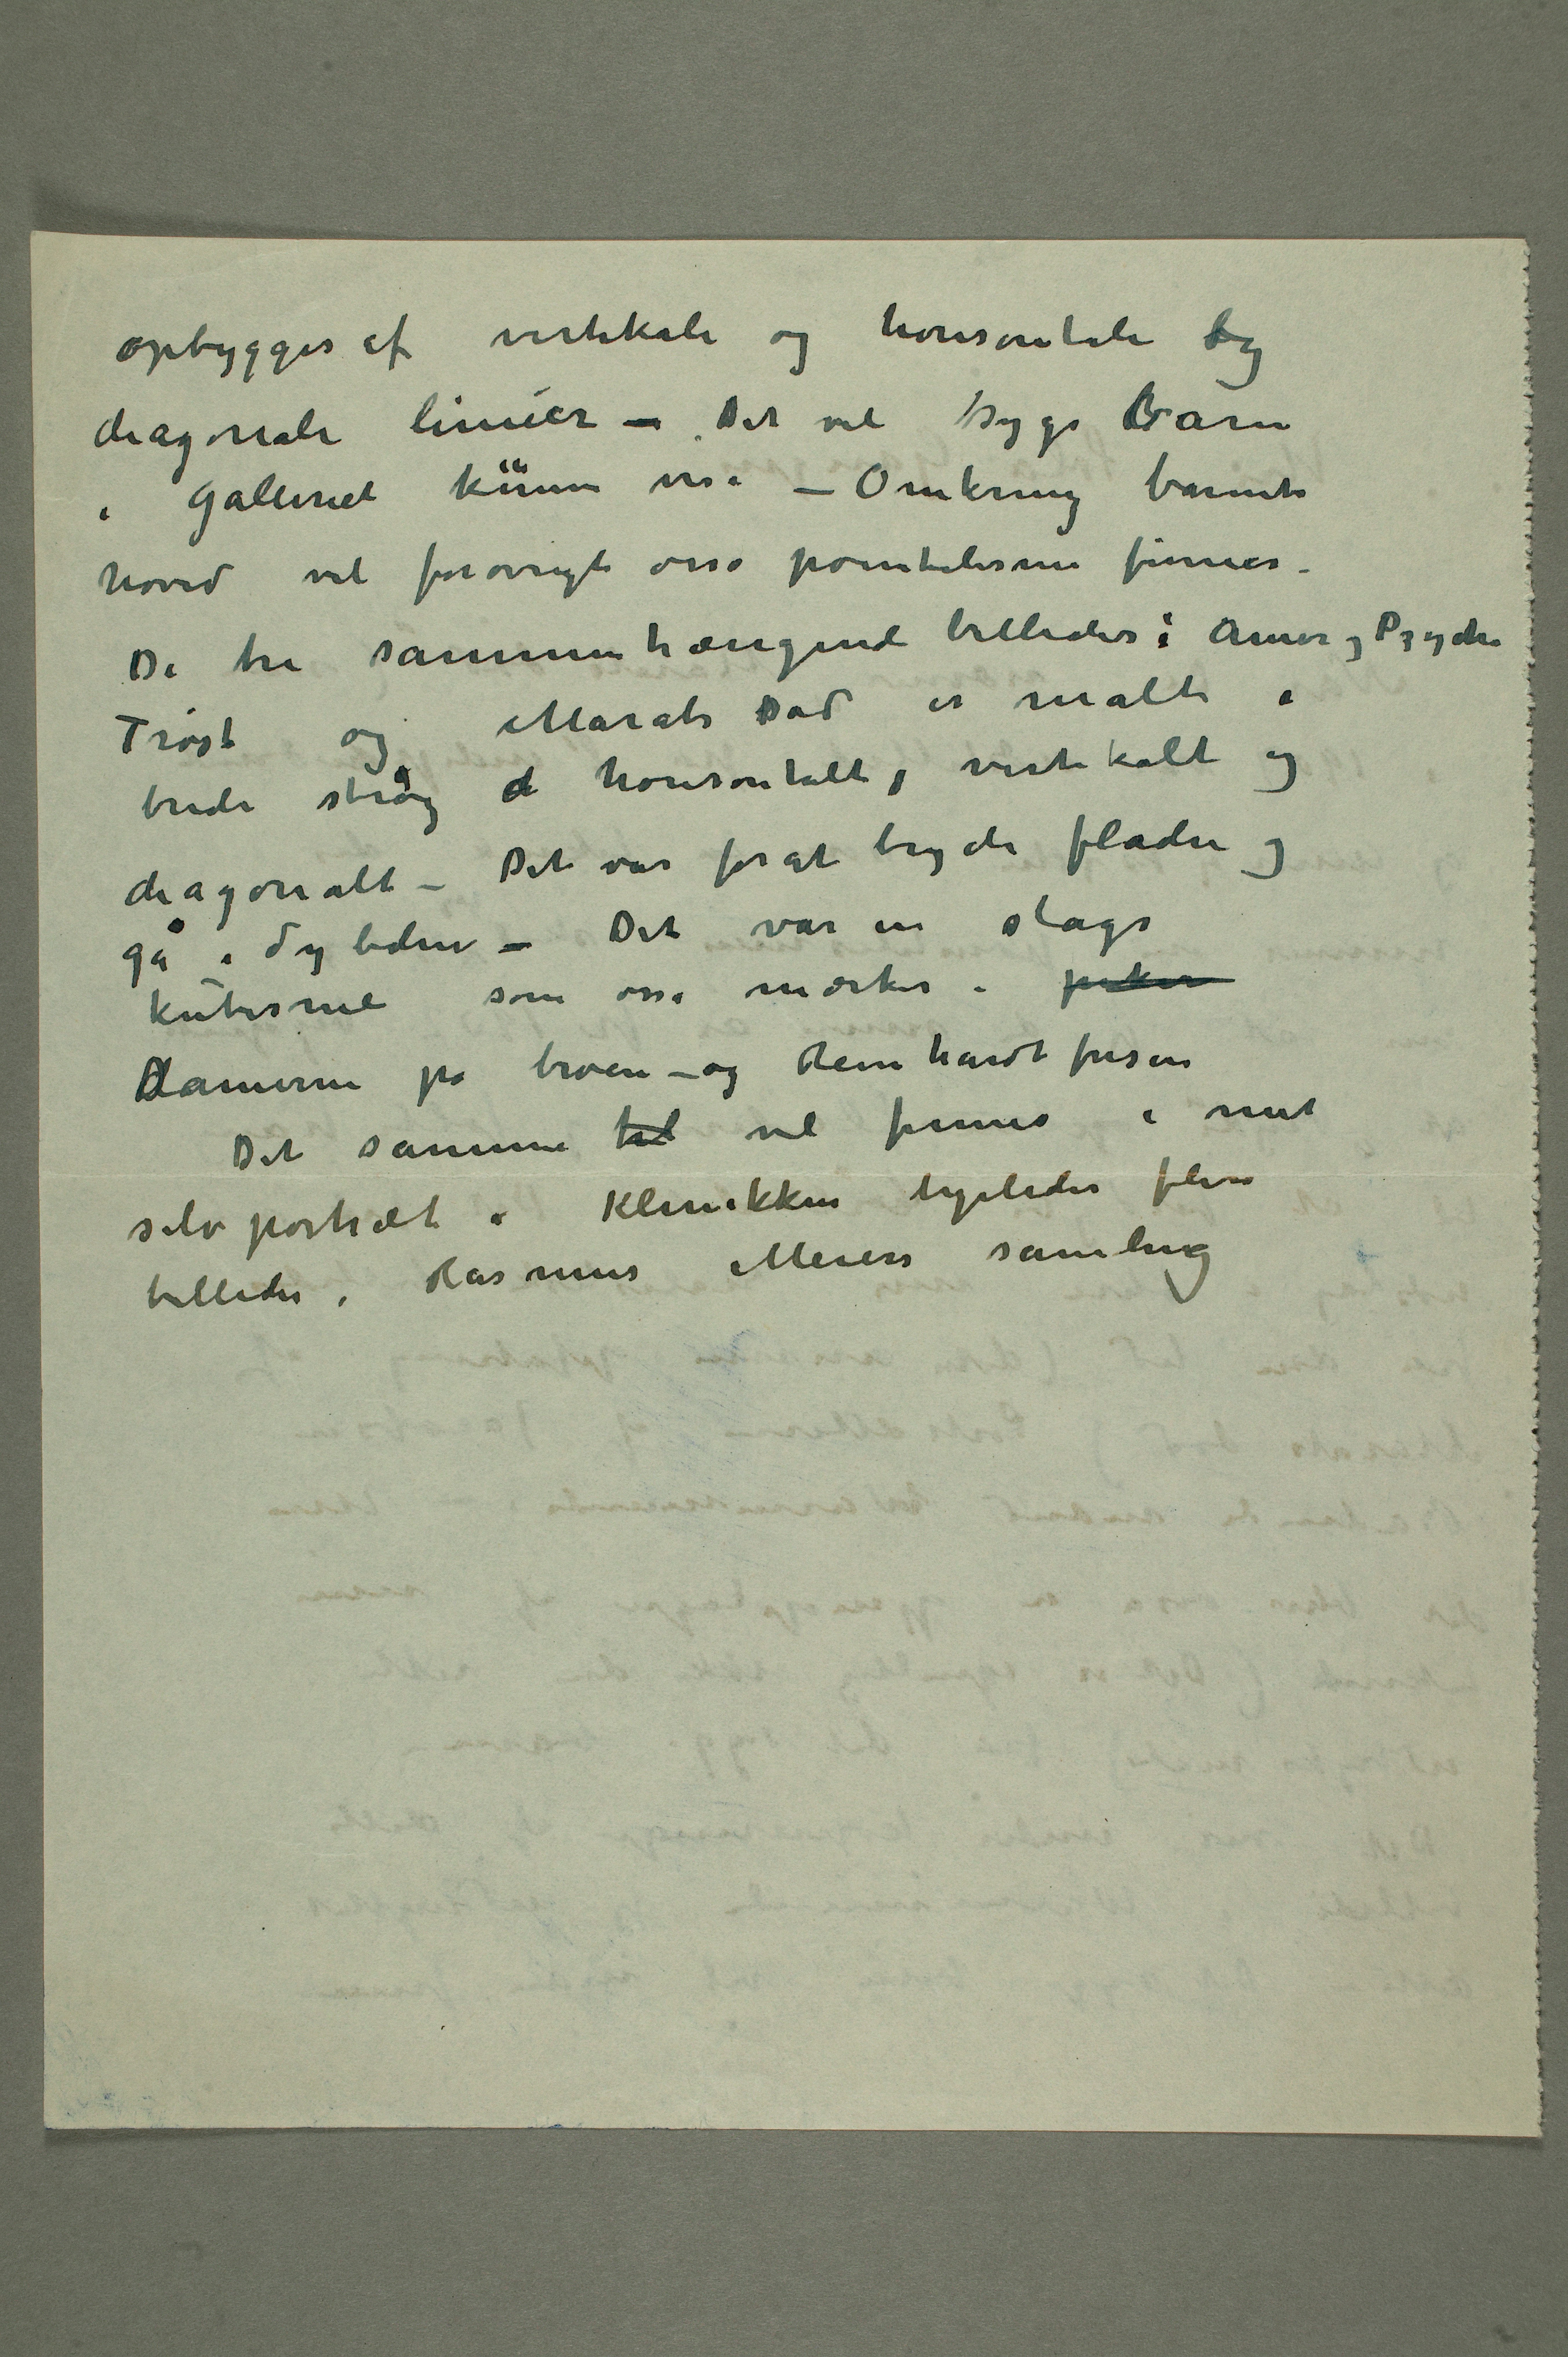 opbygges af vertikale og horisontale og
diagonale linier – Det vil syge Barn
i Galleriet kunne vise – Omkring barnets
hoved vil forøvrigt osså pointelisme finnes –
De tre sammenhængende billeder: Amor og Psyche
Trøst og Marats Død er malt i
brede strøg horisontalt, vertikalt og
diagonalt – Det var forat bryde fladen og
gå i dybden – Det var en slags
kubisme som osså mærkes i piker
Damerne på broen – og Reinhardtfrisen
Det samme til vil finnes i mit
selvportræt i Klinikken ligeledes flere
billeder i Rasmus Meiers samling